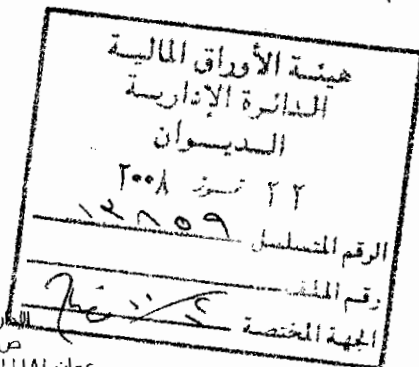 هيئة الأوراق المالية
الدائرة الإدارية
الديوان
٢٢ تموز ٢٠٠٨
الرقم المتسلسل ١٢٨٥٩
رقم الملف
الجهة المختصة